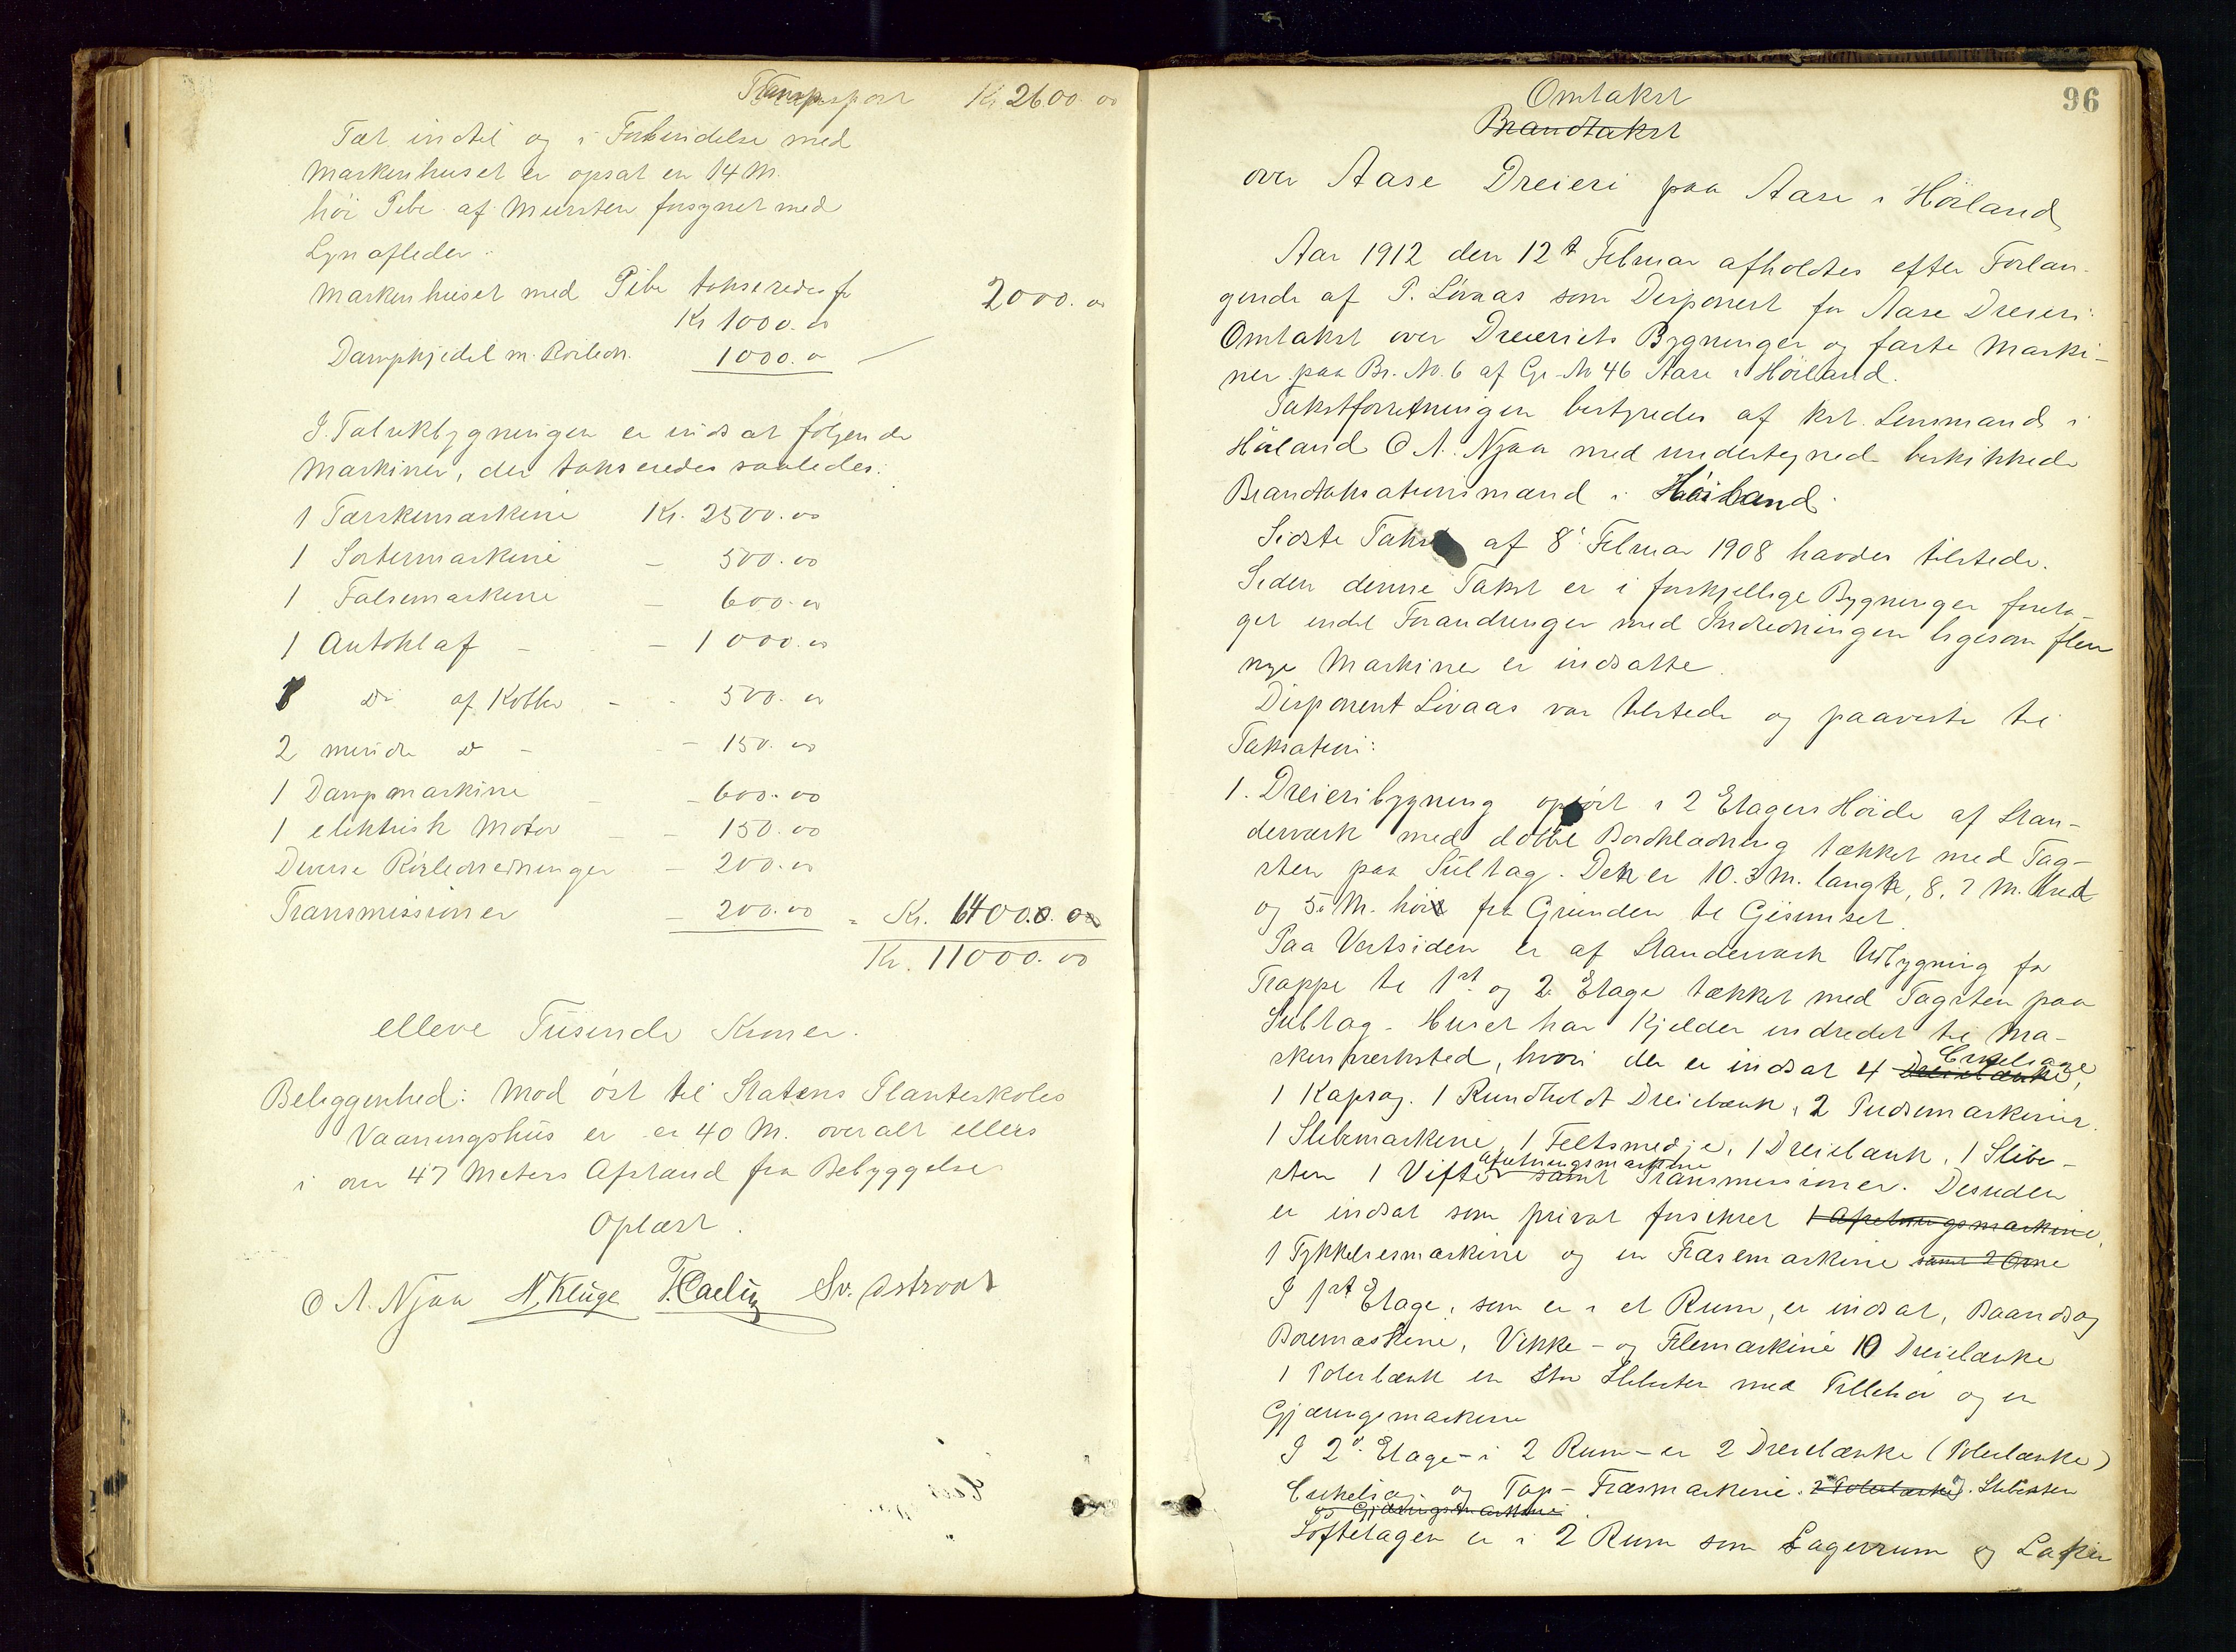 Transport Kr 2600.00
Tæt indtil og i Forbindelse med
Maskenhuset er opsat en 14 M.
høi Pibe af Mursten forsynet med
Lynafleder.
Maskenhuset med Pibe takseredes for
Kr 1000.00 2000.00
Dampkjedel m. Rørledn. 1000.00
I Fabrikbygningen er indsat følgende
Maskiner, der takseredes saaledes:
1 Tærskemaskine Kr. 2500.00
1 Sortermaskine - 500.00
1 Falsemaskine - 600.00
1 Autoklaf - - 1000.00
1 Do af Kobber - - 500.00
2 mindre do - - 150.00
1 Dampmaskine - - 600.00
1 elektrisk Motor - - 150.00
Diverse Rørledninger - 200.00
Transmissioner - 200.00 = Kr. 6400.00
Kr. 11000.00
elleve Tusinde Kroner.
Beliggenhed: Mod øst til Statens Planteskoles
Vaaningshus er er 40 M. overalt ellers
i over 47 Meters Afstand fra Bebyggelse
Oplæst.
O A. Njaa N. Kluge Sv. Østraat
96
Omtakst
Brandtakst
over Aase Dreieri paa Aase i Høiland
Aar 1912 den 12t Februar afholdtes efter Forlan-
gende af P. Livaas som Disponent for Aase Dreieri:
Omtakst over Dreieriets Bygninger og faste Maski-
ner paa Br. No. 6 af Gr. No 46 Aase i Høiland.
Takstforretningen bestyredes af kst. Lensmand i
Høiland O A. Njaa med undertegnede beskikkede
Brandtaksationsmænd i Høiland.
Sidste Takst af 8de Februar 1908 havdes tilstede.
Siden denne Takst er i forskjellige Bygninger foreta-
get endel Forandringer med Indredningen ligesom flere
nye Maskiner er indsatte.
Disponent Livaas var tilstede og paaviste til
Taksation:
1. Dreieribygning opført i 2 Etagers Høide af Stan-
derværk med dobbel Bordklædning tækket med Tag-
sten paa Sultag. Den er 10.3 M. lang, 8,7 M. bred
og 5.0 M. høi fra Grunden til Gesimset.
Paa Vestsiden er af Standerværk Udbygning for
Trappe til 1st og 2. Etage tækket med Tagsten paa
Sultag. Huset har Kjelder indredet til Ma-
Cirkelsage
skinværksted, hvori der er indsat 4 Dreiebænke,
1 Kapsag. 1 Rundholdt Dreiebænk, 2 Pudsemaskiner.
1 Slibemaskine, 1 Feltsmedje, 1 Dreiebænk, 1 Slibe-
afretningsmaskine
sten 1 Vifte samt Transmissioner. Desuden
er indsat som privat forsikret 1 Afretningsmaskine,
1 Tykkelsesmaskine og en Fræsemaskine samt 2 Ovne
I 1st Etage, som er i et Rum, er indsat, Baandsag
Boremaskine, Vikke- og Filemaskine 10 Dreiebænke
1 Polerbænk en Stor Slibesten med Tilbehør og en
Gjæringsmaskine
I 2d. Etage - i 2 Rum - er 2 Dreiebænke (Polerbænke)
Cirkelsag. og Tap- Fræsmaskine. 2 Polerbænke). Slibesten
og Gjæringsmaskine.
Loftetagen er i 2 Rum som Lagerrum og Laker